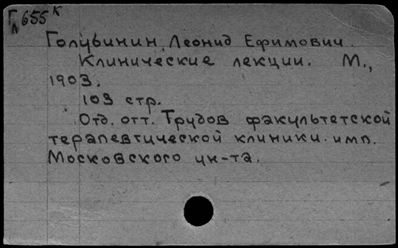 Г/л 655 к
Голубинин, Леонид Ефимович.
Клинические лекции. М.,
1903.
103 стр.
Отд. отт. Трудов факультетской
терапевтической клиники имп.
Московского ун-та.